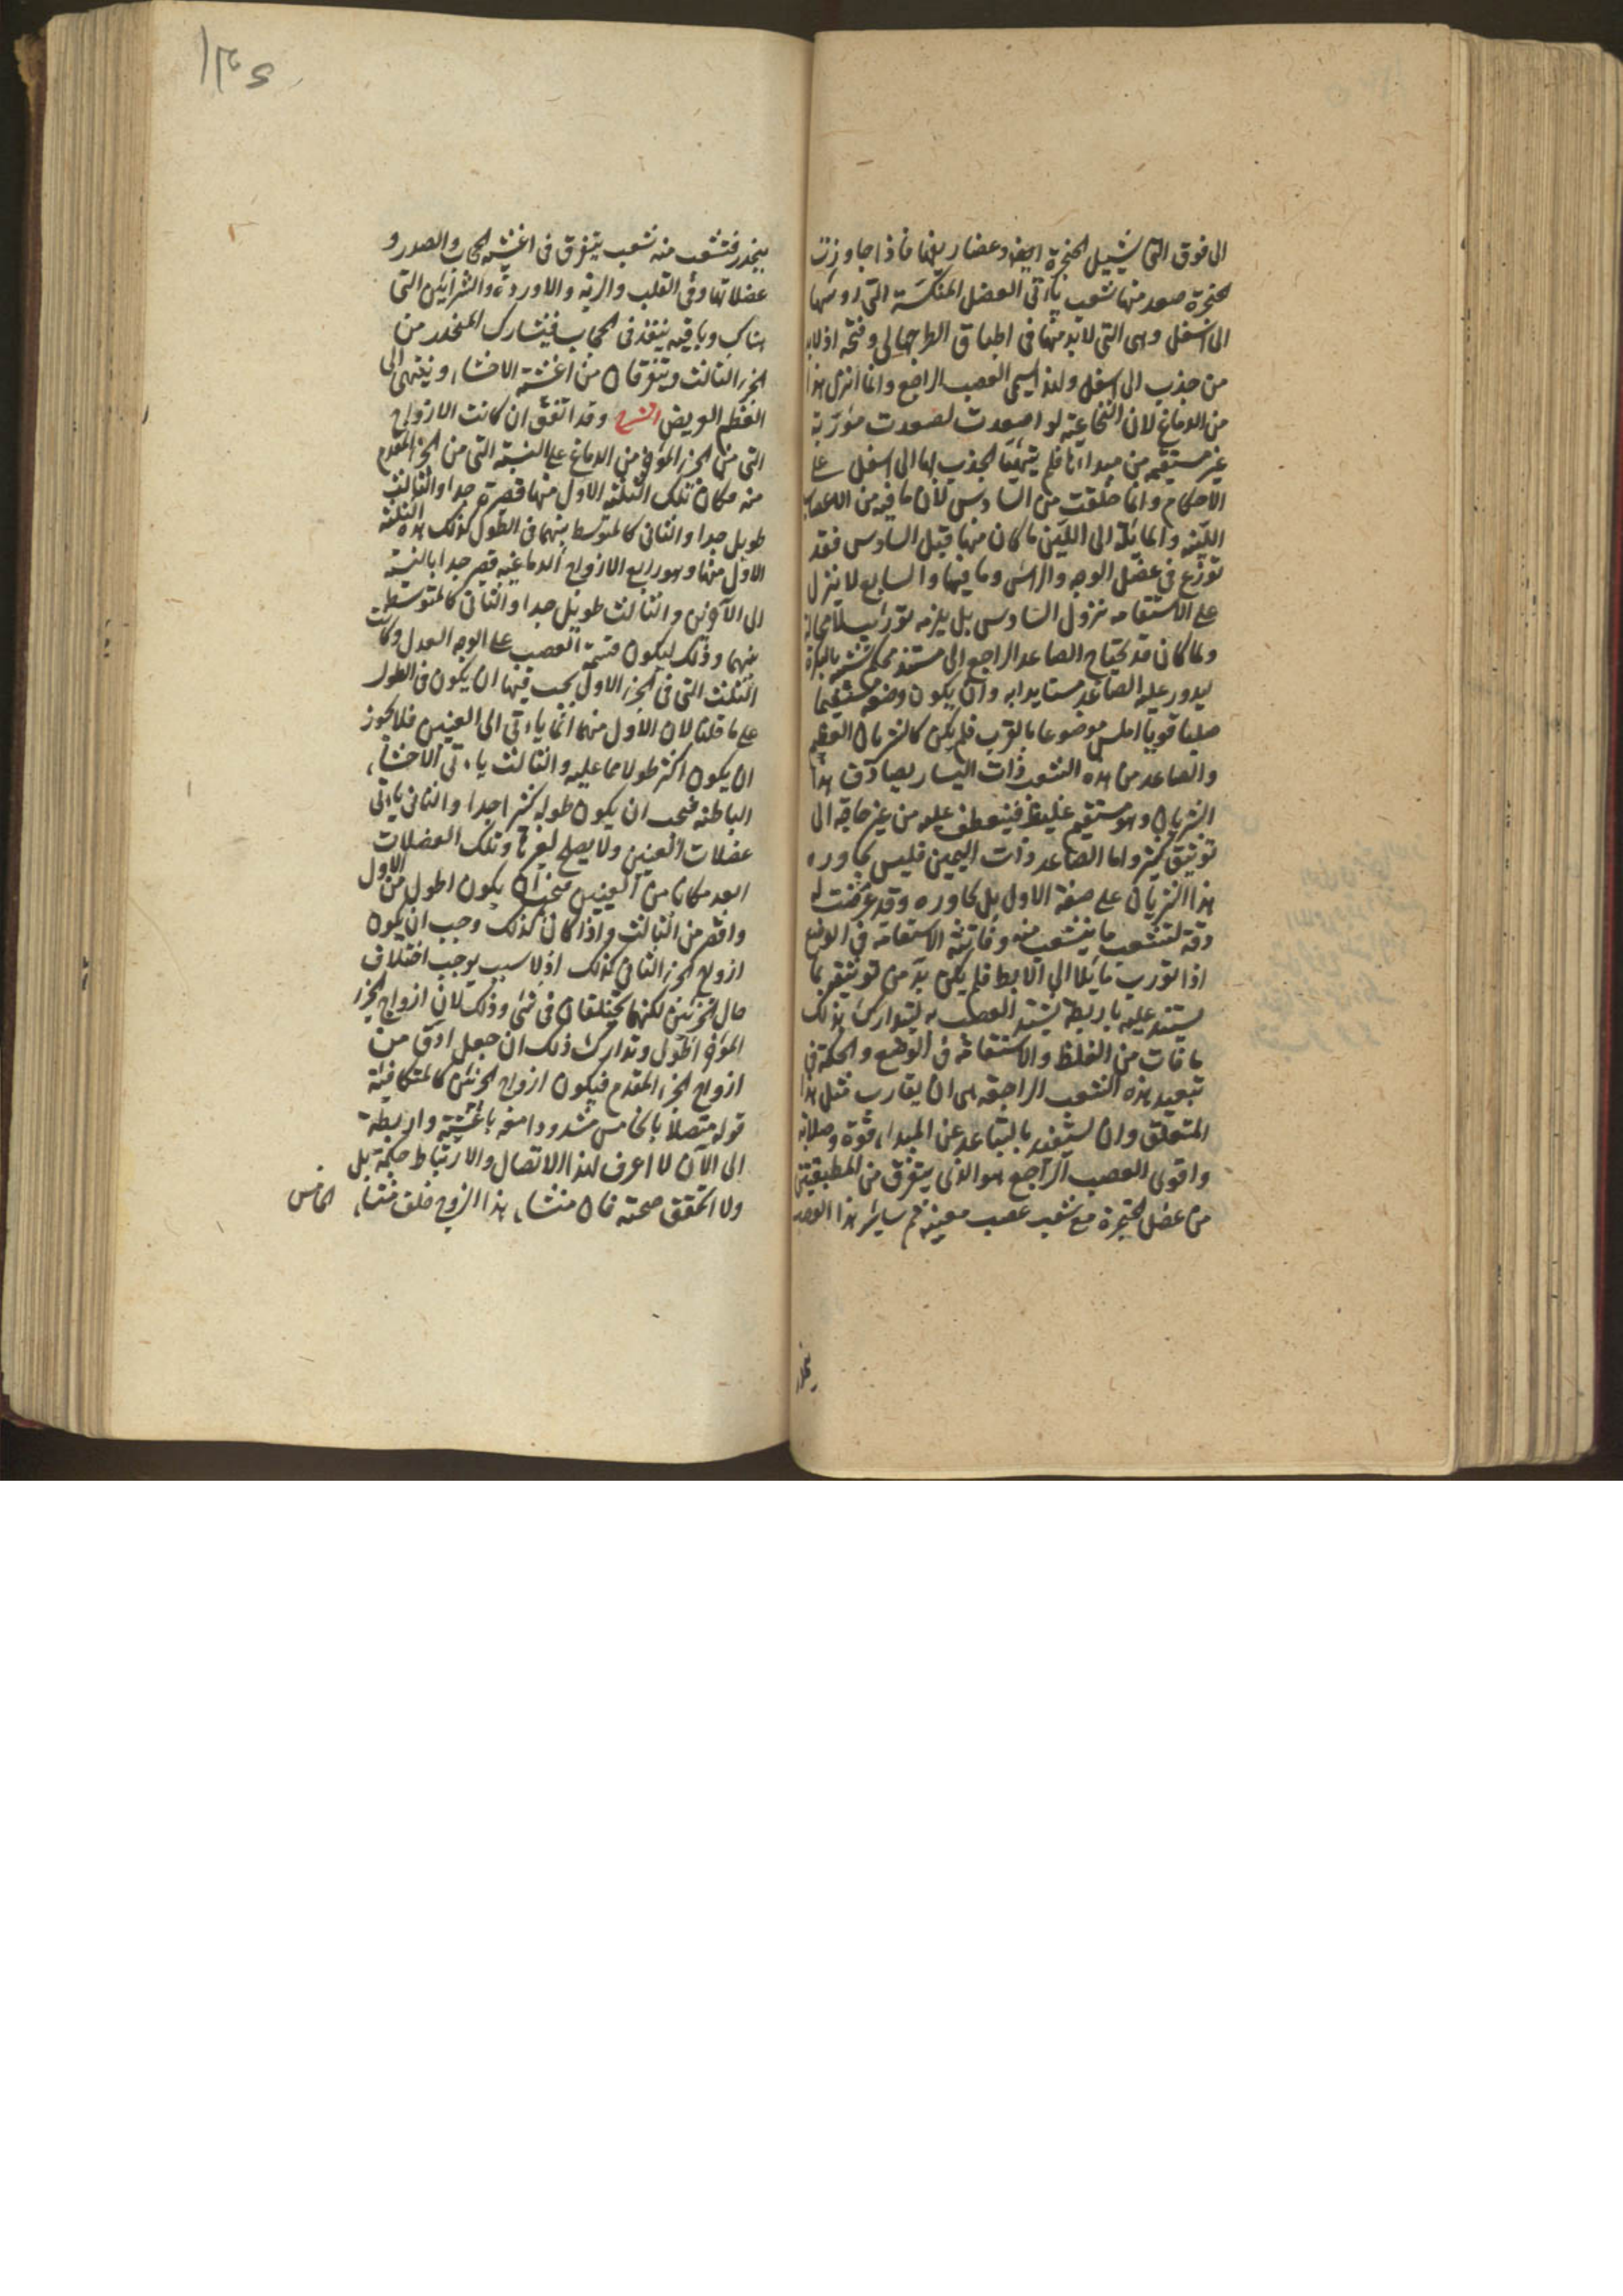 الى فوق التى تشيل الحنجرة ايضا وعضاريفها فاذا جاوزت
الحنجرة صعد منها شعب يأتى العضل المنكسة التى روسها
الى اسفل وهى التى لابد منها فى اطباق الطرجهالى وفتحه اذ لابد
من جذب الى اسفل ولهذا يسمى العصب الراجع وانما انزل هذا
من الدماغ لان النخاعية لو اصعدت لصعدت مؤربة
غير مستقيم من مبداءها فلم يتهيا الجذب بها الى اسفل على
الاحكام وانما خلقت من السادس لان ما فيه من الاعصاب
اللينة والمايلة الى اللين ما كان منها قبل السادس فقد
توزع فى عضل الوجه والراس وما فيها والسابع لا ينزل
على الاستقامه نزول السادس بل يلزمه تورب لا محالة
ولما كان قد يحتاج الصاعد الراجع الى مستند محكم شبيه بالبكرة
ليدور عليه الصاعد مستايدا به وان يكون وضعه مستقيما
صلبا قويا املس موضوعا بالقرب فلم يكن كالشريان العظيم
والصاعد من هذه الشعب ذات اليسار يصادف هذا
الشريان وهو مستقيم غليظ فينعطف عليه من غير حاجه الى
توثيق كثير واما الصاعد ذات اليمين فليس يجاوره
هذا الشريان على صفة الاول بل يجاوره وقد عرضت له
دقة لتشعب ما يتشعب منه وفاتته الاستقامة فى الوضع
اذا تورب مائلا الى الابط فلم يكن بد من توثيقه بما
يستند عليه باربطة يشتد الشعب به ليتدارك بذلك
ما فات من الغلظ والاستقامة فى الوضع والحكمة فى
تبعيد هذه الشعب الراجعه هى ان يقارب مثل هذا
المتعلق وان يستفيد بالتباعد عن المبداء قوة وصلابة
واقوى العصب الراجع هو الذى يتفرق من المطبقتين
من عضل الحنجرة مع شعب عصب معينه ثم ساير هذا العصب
ينحدر
١٣٥
ينحدر فتشعب منه شعب يتفرق فى اغشيه الحجاب والصدر و
عضلاتها وفى القلب والريه والاوردة والشرايين التى
هناك وباقيه ينفذ فى الحجاب فيشارك المنحدر من
الجزء الثالث ويتفرقان من اغشية الاحشاء وينتهى الى
العظم العريض الشرح وقد اتفق ان كانت الازواج
التى من الجزء المؤخر من الدماغ على النسبة التى من الجزء المقدم
منه فكان تلك الثلثة الاول منها قصيرة جدا والثالث
طويل جدا والثانى كالمتوسط بينهما فى الطول كذلك هذه الثلثة
الاول منها وهو رابع الازواج الدماغيه قصير جدا بالنسبة
الى الآخرين والثالث طويل جدا والثانى كالمتوسط
بينهما وذلك ليكون قسمة العصب على الوجه العدل وكانت
الثلث التى فى الجزء الاول يجب فيها ان يكون فى الطول
على ما قلنا لان الاول منهما انما يأتى الى العينين فلا يجوز
ان يكون اكثر طولا مما عليه والثالث يأتى الاحشاء
الباطنه فيجب ان يكون طوله كثيرا جدا والثانى يأتى
عضلات العينين ولا يصلح لغيرها وتلك العضلات
ابعد مكانا من العينين فيجب ان يكون اطول من الاول
واقصر من الثالث واذا كان كذلك وجب ان يكون
ازواج الجزء الثانى كذلك اذ لا سبب يوجب اختلاف
حال الجزئين لكنهما يختلفان فى شئ وذلك لان ازواج الجزء
المؤخر اطول وتدارك ذلك ان جعل ادق من
ازواج الجزء المقدم فيكون ازواج الجزئين كالمتكافية
قوله متصلا بالخامس مشدودا معه باغشية واربطة
الى الآن لا اعرف لهذا الاتصال والارتباط حكمة بل
ولا اتحقق صحته فان منشاء هذا الزوج خلف منشاء
الخامس